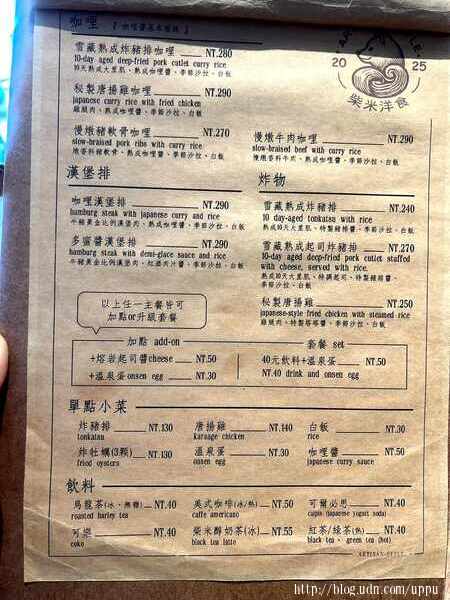 咖哩
雪藏熟成炸豬排咖哩 NT.280
10-day aged deep-fried pork cutlet curry rice
10天熟成大里肌、熟成咖哩醬、季節沙拉、白飯
秘製唐揚雞咖哩 NT.290
japanese curry rice with fried chicken
雞腿肉、熟成咖哩醬、季節沙拉、白飯
慢燉豬軟骨咖哩 NT.270
slow-braised pork ribs with curry rice
燉香料豬軟骨、熟成咖哩醬、季節沙拉、白飯
慢燉牛肉咖哩 NT.290
slow-braised beef with curry rice
慢燉香料牛肉、熟成咖哩醬、季節沙拉、白飯
2025
柴米洋食
漢堡排
咖哩漢堡排 NT.290
hamburg steak with japanese curry and rice
牛豬黃金比例漢堡肉、熟成咖哩醬、季節沙拉、白飯
多蜜醬漢堡排 NT.290
hamburg steak with demi-glace sauce and rice
牛豬黃金比例漢堡肉、紅酒肉汁醬、季節沙拉、白飯
炸物
雪藏熟成炸豬排 NT.240
10 day-aged tonkatsu with rice
熟成10天大里肌、特製豬排醬、季節沙拉、白飯
雪藏熟成起司炸豬排 NT.270
10-day aged deep-fried pork cutlet stuffed
with cheese, served with rice.
熟成10天大里肌、特調起司、特製豬排醬、
季節沙拉、白飯
秘製唐揚雞 NT.250
japanese-style fried chicken with steamed rice
雞腿肉、特製塔塔醬、季節沙拉、白飯
以上任一主餐皆可
加點or升級套餐
加點 add-on
+熔岩起司醬cheese NT.50
+溫泉蛋onsen egg NT.30
套餐 set
40元飲料+溫泉蛋 NT.50
NT.40 drink and onsen egg
單點小菜
炸豬排 NT.130
tonkatsu
唐揚雞 NT.140
karaage chicken
白飯 NT.30
rice
炸牡蠣(3顆) NT.130
fried oysters
溫泉蛋 NT.30
onsen egg
咖哩醬 NT.50
japanese curry sauce
飲料
烏龍茶(冰、無糖) NT.40
roasted barley tea
美式咖啡(冰/熱) NT.50
caffe americano
可爾必思 NT.40
calpis (japanese yogurt soda)
可樂 NT.40
coke
柴米醇奶茶(冰) NT.55
black tea latte
紅茶/綠茶(熱) NT.40
black tea、green tea (hot)
ARTISAN-STYLE
http://blog.udn.com/uppu